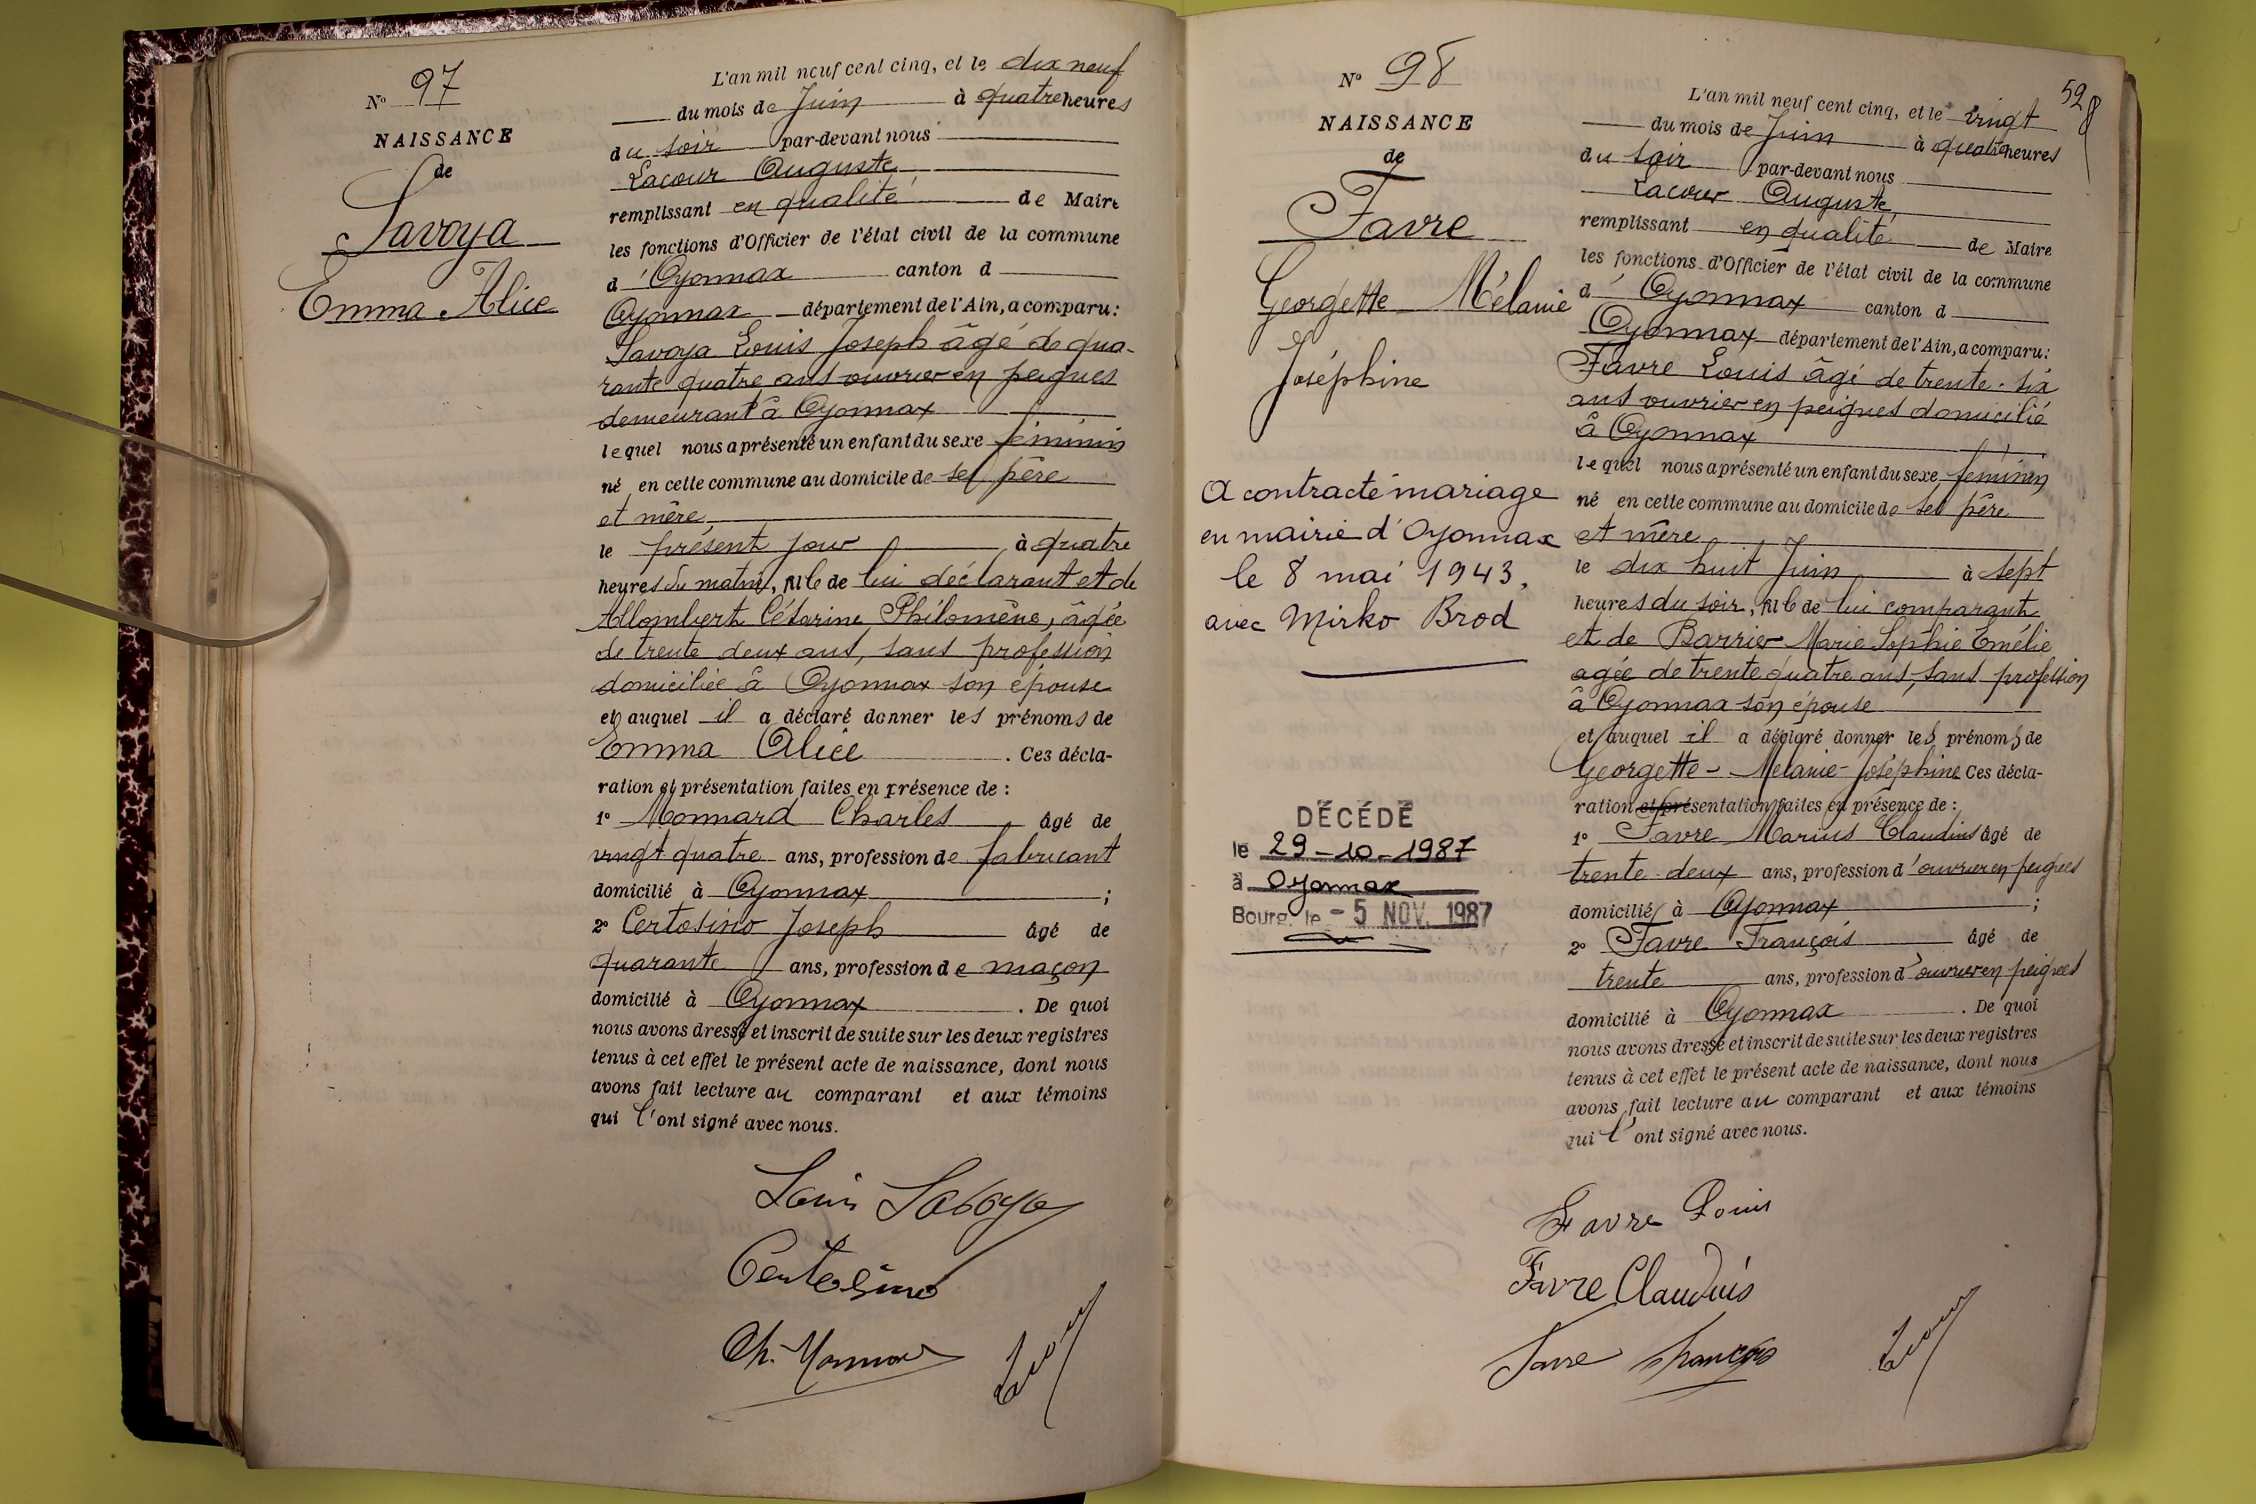 N° 97
NAISSANCE
de
Savoya
Emma Alice
L'an mil neuf cent cinq, et le dix neuf
du mois de Juin à quatre heures
du soir par-devant nous
Lacour Auguste
remplissant en qualité de Maire
les fonctions d'Officier de l'état civil de la commune
d'Oyonnax canton d
Oyonnax département de l'Ain, a comparu :
Savoya Louis Joseph âgé de qua-
rante quatre ans ouvrier en peignes
demeurant à Oyonnax
lequel nous a présenté un enfant du sexe féminin
né en cette commune au domicile de ses père
et mère
le présent jour à quatre
heures du matin, fille de lui déclarant et de
Allombert Césarine Philomène, âgée
de trente deux ans, sans profession
domiciliée à Oyonnax son épouse
et auquel il a déclaré donner les prénoms de
Emma Alice . Ces décla-
ration et présentation faites en présence de :
1° Monnard Charles âgé de
vingt quatre ans, profession de fabricant
domicilié à Oyonnax ;
2° Certosino Joseph âgé de
quarante ans, profession de maçon
domicilié à Oyonnax . De quoi
nous avons dressé et inscrit de suite sur les deux registres
tenus à cet effet le présent acte de naissance, dont nous
avons fait lecture au comparant et aux témoins
qui l'ont signé avec nous.
Louis Savoya
Certosino
Ch. Monnard
N° 98
NAISSANCE
de
Favre
Georgette Mélanie
Joséphine
A contracté mariage
en mairie d'Oyonnax
le 8 mai 1943,
avec Mirko Brod
DÉCÉDÉ
le 29-10-1987
à Oyonnax
Bourg, le - 5 NOV. 1987
52
L'an mil neuf cent cinq, et le vingt
du mois de Juin à quatre heures
du soir par-devant nous
Lacour Auguste
remplissant en qualité de Maire
les fonctions d'Officier de l'état civil de la commune
d'Oyonnax canton d
Oyonnax département de l'Ain, a comparu :
Favre Louis âgé de trente-six
ans ouvrier en peignes domicilié
à Oyonnax
lequel nous a présenté un enfant du sexe féminin
né en cette commune au domicile de ses père
et mère
le dix huit Juin à sept
heures du soir, fille de lui comparant
et de Barrier Marie Sophie Emélie
agée de trente quatre ans, sans profession
à Oyonnax son épouse
et auquel il a déclaré donner les prénoms de
Georgette - Mélanie - Joséphine Ces décla-
ration et présentation faites en présence de :
1° Favre Marius Claudius âgé de
trente-deux ans, profession d'ouvrier en peignes
domicilié à Oyonnax ;
2° Favre François âgé de
trente ans, profession d'ouvrier en peignes
domicilié à Oyonnax . De quoi
nous avons dressé et inscrit de suite sur les deux registres
tenus à cet effet le présent acte de naissance, dont nous
avons fait lecture au comparant et aux témoins
qui l'ont signé avec nous.
Favre Louis
Favre Claudius
Favre François